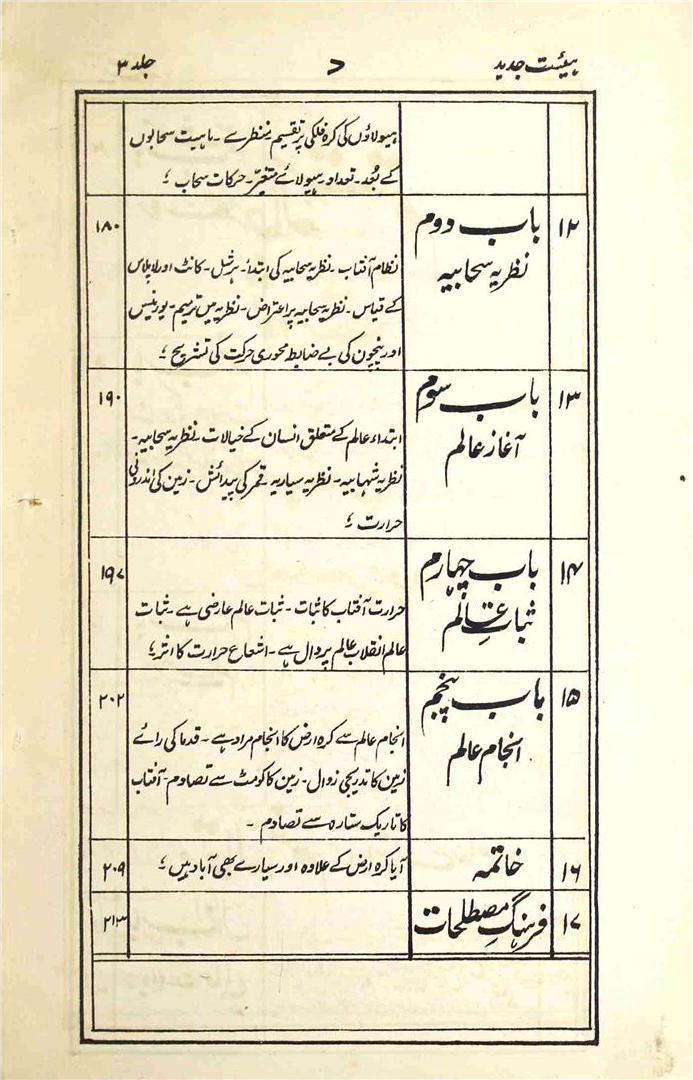 ہیئت جدید ۷ جلد ۳
ہیولاؤں کی کرہ فلکی پر تقسیم۔ منظرے۔ ماہیت سحابوں
کے بُعد۔ تعداد۔ ہیولائے متغیر۔ حرکات سحاب ؛
۱۲ باب دوم ۱۸۰
نظریہ سحابیہ
نظام آفتاب۔ نظریہ سحابیہ کی ابتدا۔ ہرشل۔ کانٹ اور لاپلاس
کے قیاس۔ نظریہ سحابیہ پر اعتراض۔ نظریہ میں ترمیم۔ یورینیس
اور نپچون کی بے ضابطہ محوری حرکت کی تشریح ؛
۱۳ باب سوم ۱۹۰
آغاز عالم
ابتداء عالم کے متعلق انسان کے خیالات۔ نظریہ سحابیہ۔
نظریہ شہابیہ۔ نظریہ سیاریہ۔ قمر کی پیدائش۔ زمین کی اندرونی
حرارت ؛
۱۴ باب چہارم ۱۹۷
ثباتِ عالم
حرارت آفتاب کا ثبات۔ ثبات عالم عارضی ہے۔ ثبات
عالم انقلاب عالم پر دال ہے۔ اشعاع حرارت کا اثر ؛
۱۵ باب پنجم ۲۰۲
انجام عالم
انجام عالم سے کرہ ارض کا انجام مراد ہے۔ قدما کی رائے
زمین کا تدریجی زوال۔ زمین کا کومٹ سے تصادم۔ آفتاب
کا تاریک ستارہ سے تصادم ۔
۱۶ خاتمہ آیا کرہ ارض کے علاوہ اور سیارے بھی آباد ہیں ؛ ۲۰۹
۱۷ فرہنگِ مصطلحات ۲۱۳